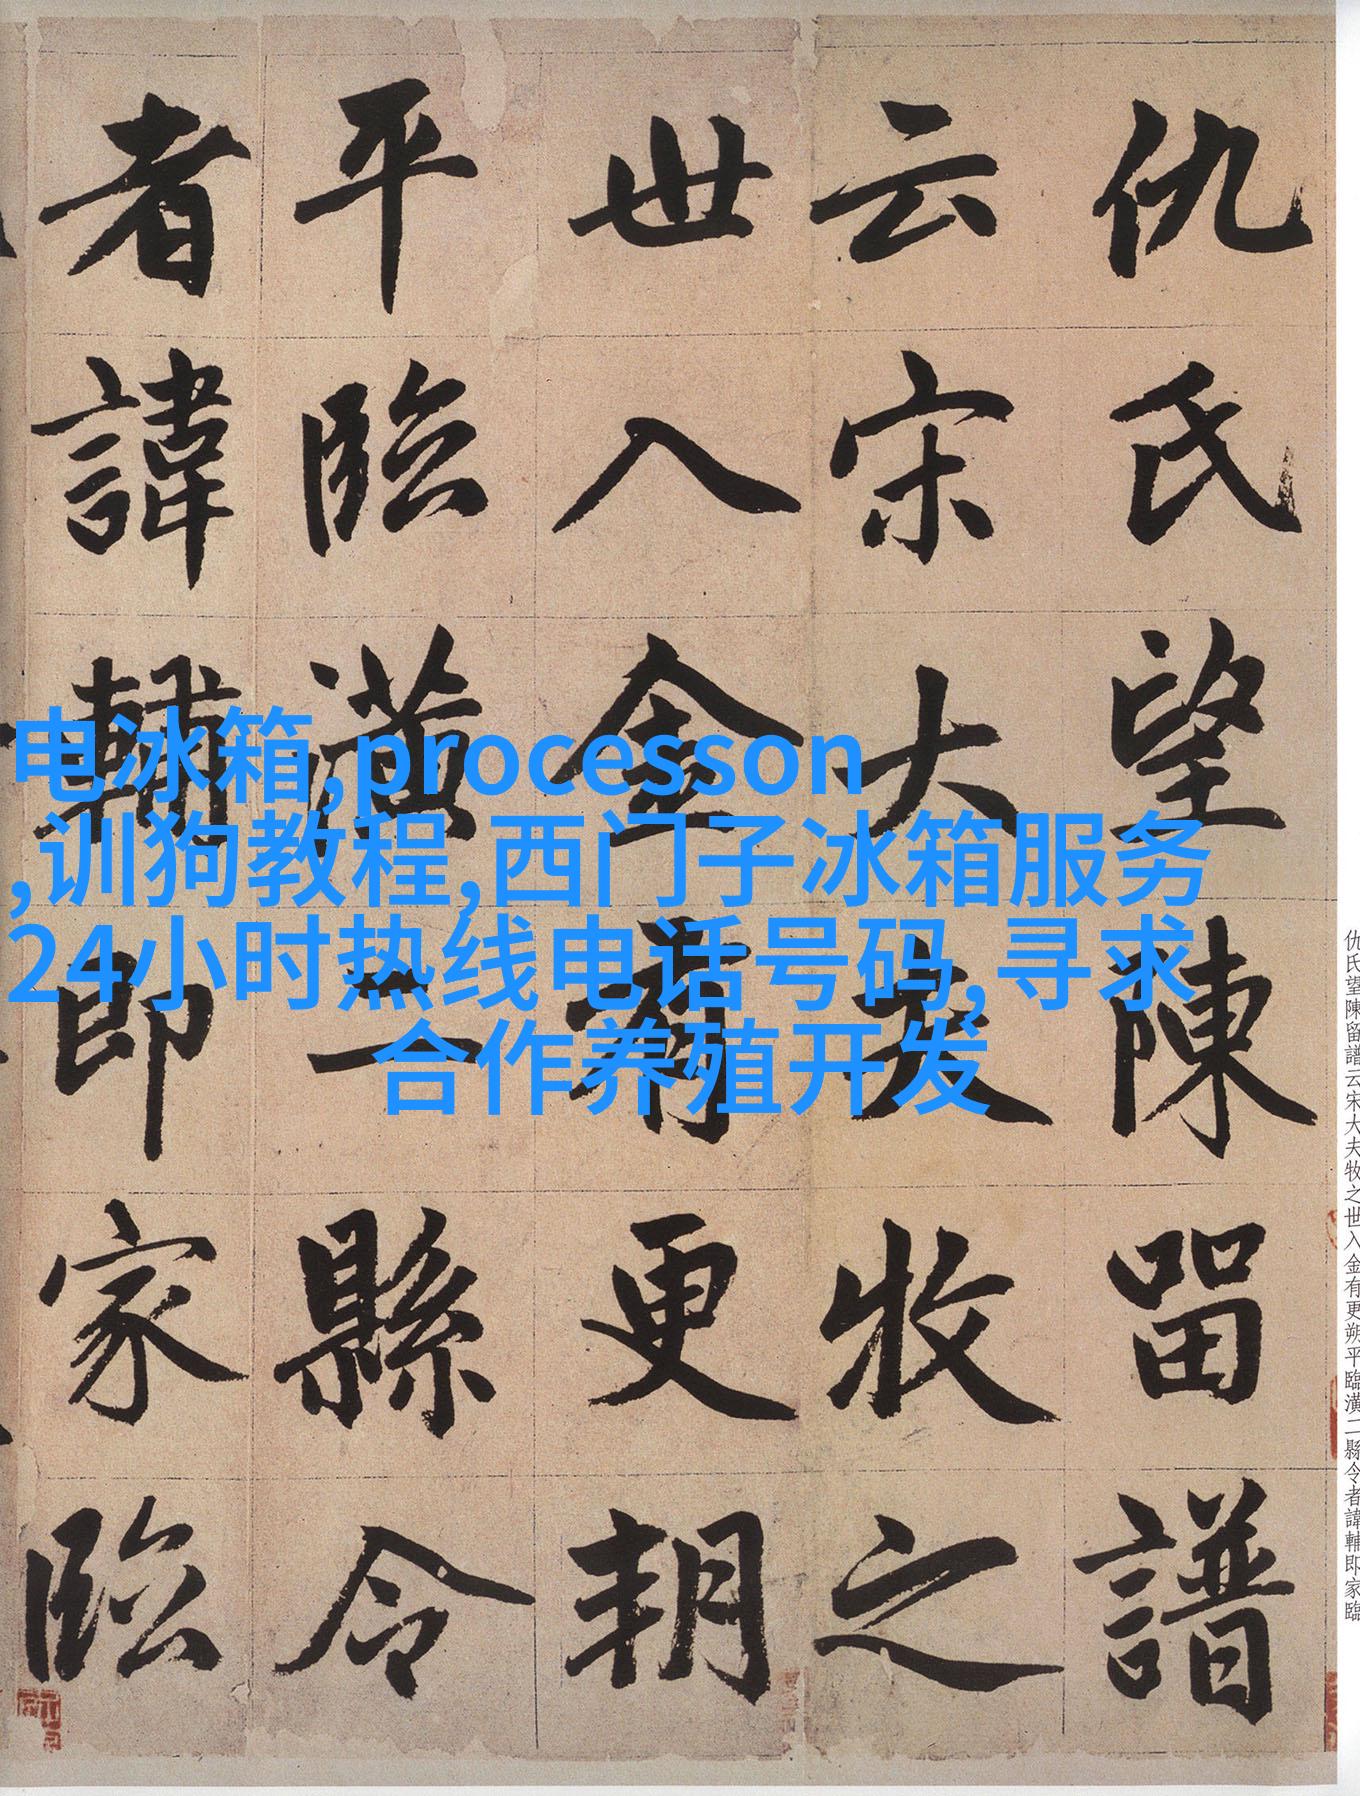 仇氏望陳留譜云宋大夫牧之世入金有更朔平臨潢二縣令者諱輔即家臨
仇氏望陳留譜
云宋大夫牧之
世入金有更朔
平臨潢二縣令
者諱輔即家臨
电冰箱,processon
,训狗教程,西门子冰箱服务
24小时热线电话号码,寻求
合作养殖开发